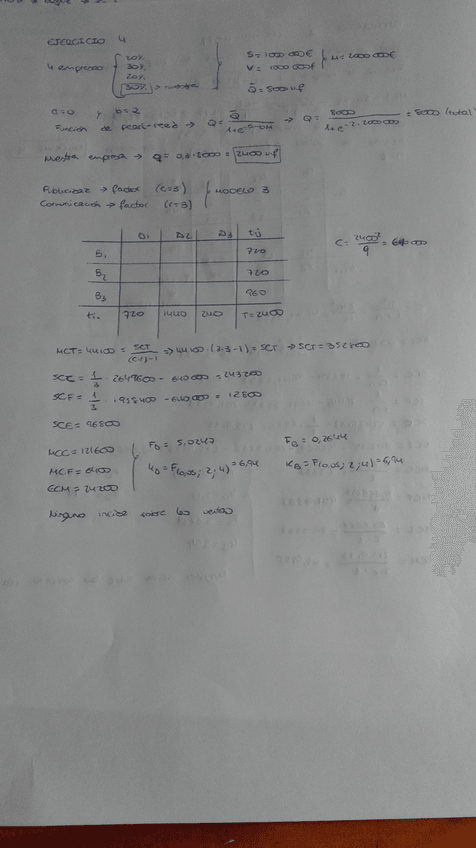 EJERCICIO 4
4 empresas { 20% 30% 20% 30% → nuestra
S = 1000 000€
V = 1000 000€ } M = 2000 000€
Q̄ = 8000 u.f
a=0 y b=2
Función de pearl-reed → Q = Q̄ / 1+e^-a-bM → Q = 8000 / 1+e^-2·2000000 = 8000 (total)
Nuestra empresa → Q = 0,3·8000 = 2400 u.f
Publicidad → factor (c=3)
Comunicación → factor (r=3) } MODELO 3
D1 D2 D3 t.j
B1 720
B2 720
B3 960
ti. 720 1440 240 T=2400
C = 2400² / 9 = 640 000
MCT = 44100 = SCT / (c·r)-1 ⇒ 44100·(3·3-1) = SCT ⇒ SCT = 352800
SCC = 1/3 · 2649600 - 640000 = 243200
SCF = 1/3 · 1958400 - 640000 = 12800
SCE = 96800
MCC = 121600
MCF = 6400
ECM = 24200
FD = 5,0247
KD = F(0,05; 2; 4) = 6,94
FB = 0,2644
KB = F(0,05; 2; 4) = 6,94
Ninguno incide sobre las ventas